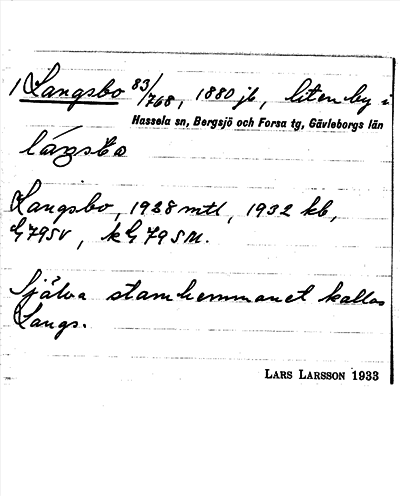 1 Langsbo 83/768, 1880 jb, liten by i
Hassela sn, Bergsjö och Forsa tg, Gävleborgs län
Langsbo, 1928 mtl, 1932 kb,
G 79 SV, kG 79 SM.
Själva stamhemmanet kallas
Langs.
LARS LARSSON 1933